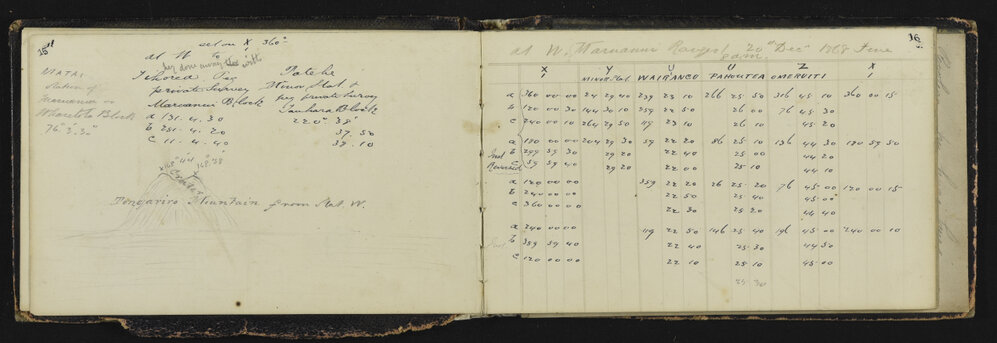 15
at W set on X 360°
to
peg done away with
Ihorea Peg
private Survey
Maruanui Block
a 131. 4. 30
b 251. 4. 20
c 11. 4. 40
Patehe
Minor Stat
per private survey
Tauhara Block
220° 38'
37. 50
38. 10
MATAI
Station of
on
Block
76° 3' 30"
Crater
Tongariro Mountain from Stat W.
16
at W, Maruanui Range 20th Decr 1868 Fine
X Y U U Z X
MINOR Stat WAIRANGO PAHOUTEA OMERUITI
a 360 00 00 24 29 40 239 23 10 266 25 50 316 45 10 360 00 15
b 120 00 30 144 30 10 359 22 50 26 00 76 45 30
c 240 00 10 264 29 50 119 23 10 26 10 45 20
a 180 00 00 204 29 30 59 22 20 86 25 10 136 44 30 179 59 50
Inst b 299 59 30 29 20 22 40 25 00 44 20
Reversed c 59 59 40 29 20 22 00 25 10 44 10
a 120 00 00 359 22 20 26 25 20 76 45 00 120 00 15
b 240 00 00 22 50 25 40 45 00
c 360 00 00 22 30 25 20 44 40
a 240 00 00 119 22 50 146 25 40 196 45 00 240 00 10
Inst b 359 59 40 22 40 25 30 44 50
c 120 00 00 22 10 25 10 45 00
25 30